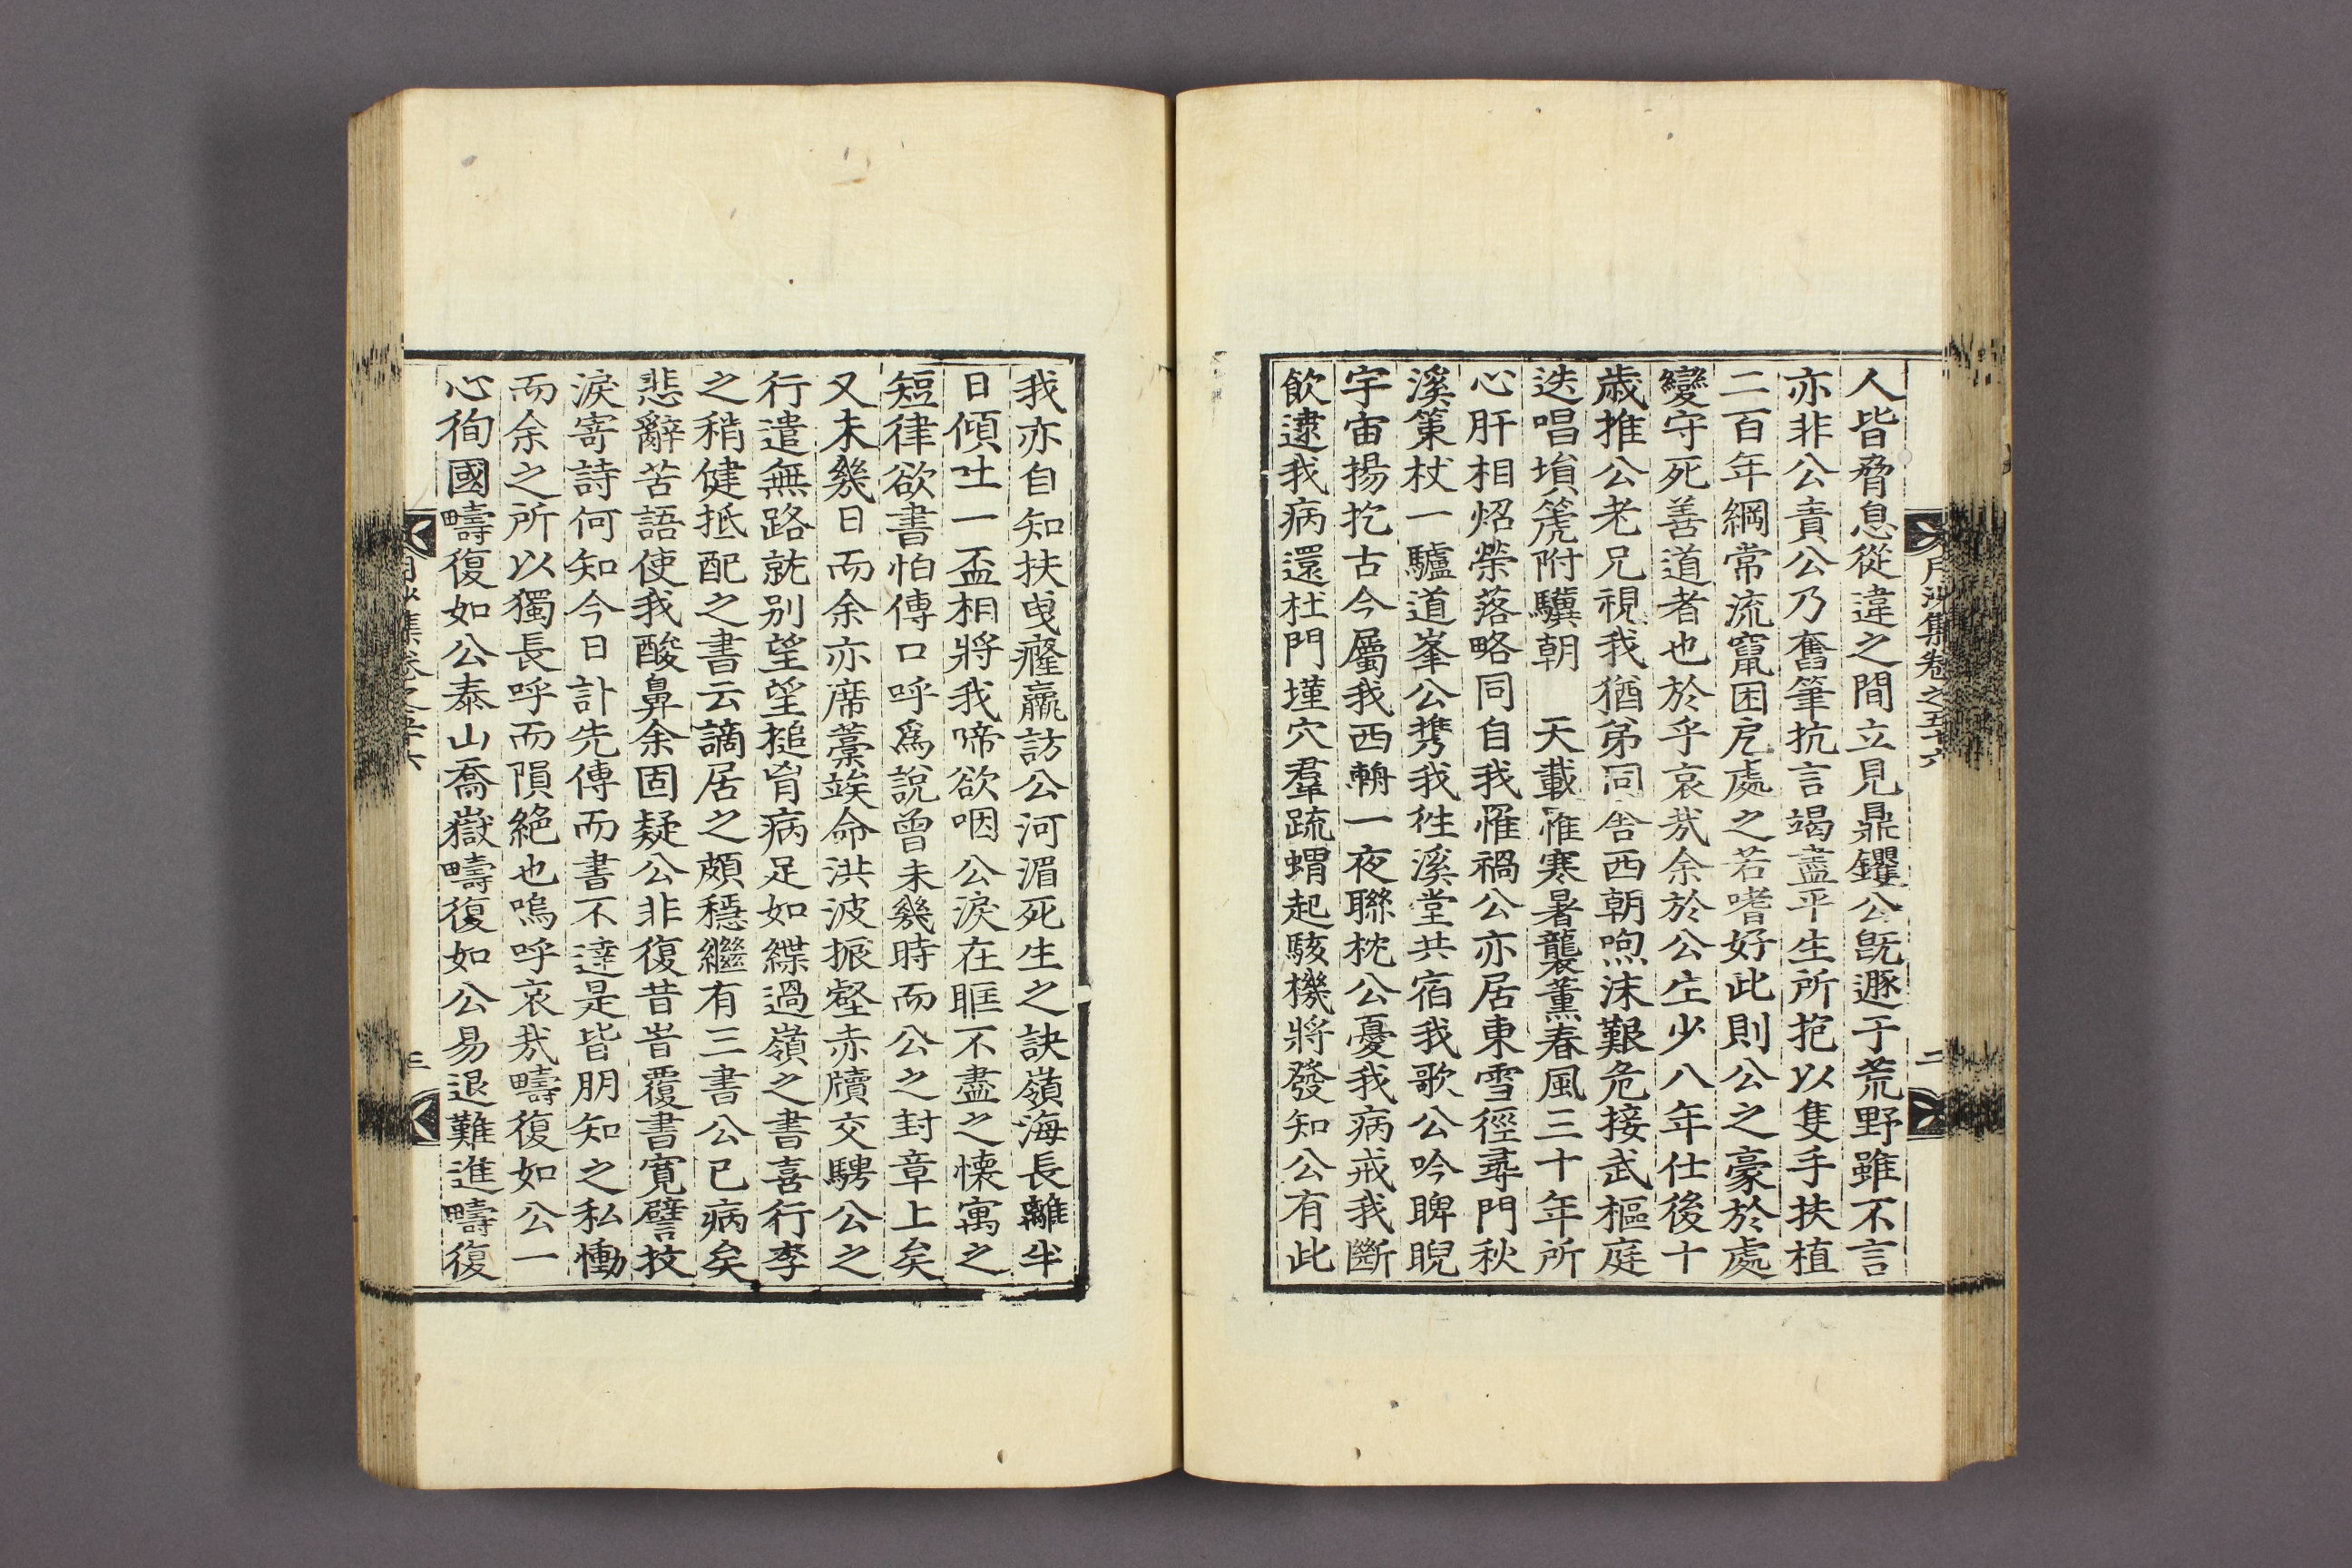 月沙集卷之五十六
二
人皆脅息從違之間立見鼎鑊公旣遯于荒野雖不言
亦非公責公乃奮筆抗言竭盡平生所抱以隻手扶植
二百年綱常流竄困戹處之若嗜好此則公之豪於處
變守死善道者也於乎哀㢤余於公生少八年仕後十
歲推公老兄視我猶弟同舍西朝呴沫艱危接武樞庭
迭唱塤篪附驥朝 天載罹寒暑襲薰春風三十年所
心肝相炤榮落略同自我罹禍公亦居東雪徑尋門秋
溪策杖一驢道峯公攜我徃溪堂共宿我歌公吟睥睨
宇宙揚扢古今屬我西輈一夜聯枕公憂我病戒我斷
飮逮我病還杜門墐穴羣䟽蝟起駭機將發知公有此
我亦自知扶曳癃羸訪公河湄死生之訣嶺海長離半
日傾吐一盃相將我啼欲咽公淚在眶不盡之懷寓之
短律欲書怕傳口呼爲說曾未幾時而公之封章上矣
又未幾日而余亦席藁竢命洪波振壑赤牘交騁公之
行遣無路就別望望搥胷病足如緤過嶺之書喜行李
之稍健抵配之書云謫居之頗穩繼有三書公已病矣
悲辭苦語使我酸鼻余固疑公非復昔昔覆書寬譬抆
淚寄詩何知今日訃先傳而書不達是皆朋知之私慟
而余之所以獨長呼而隕絶也嗚呼哀㢤疇復如公一
心徇國疇復如公泰山喬嶽疇復如公易退難進疇復
月沙集卷之五十六
三